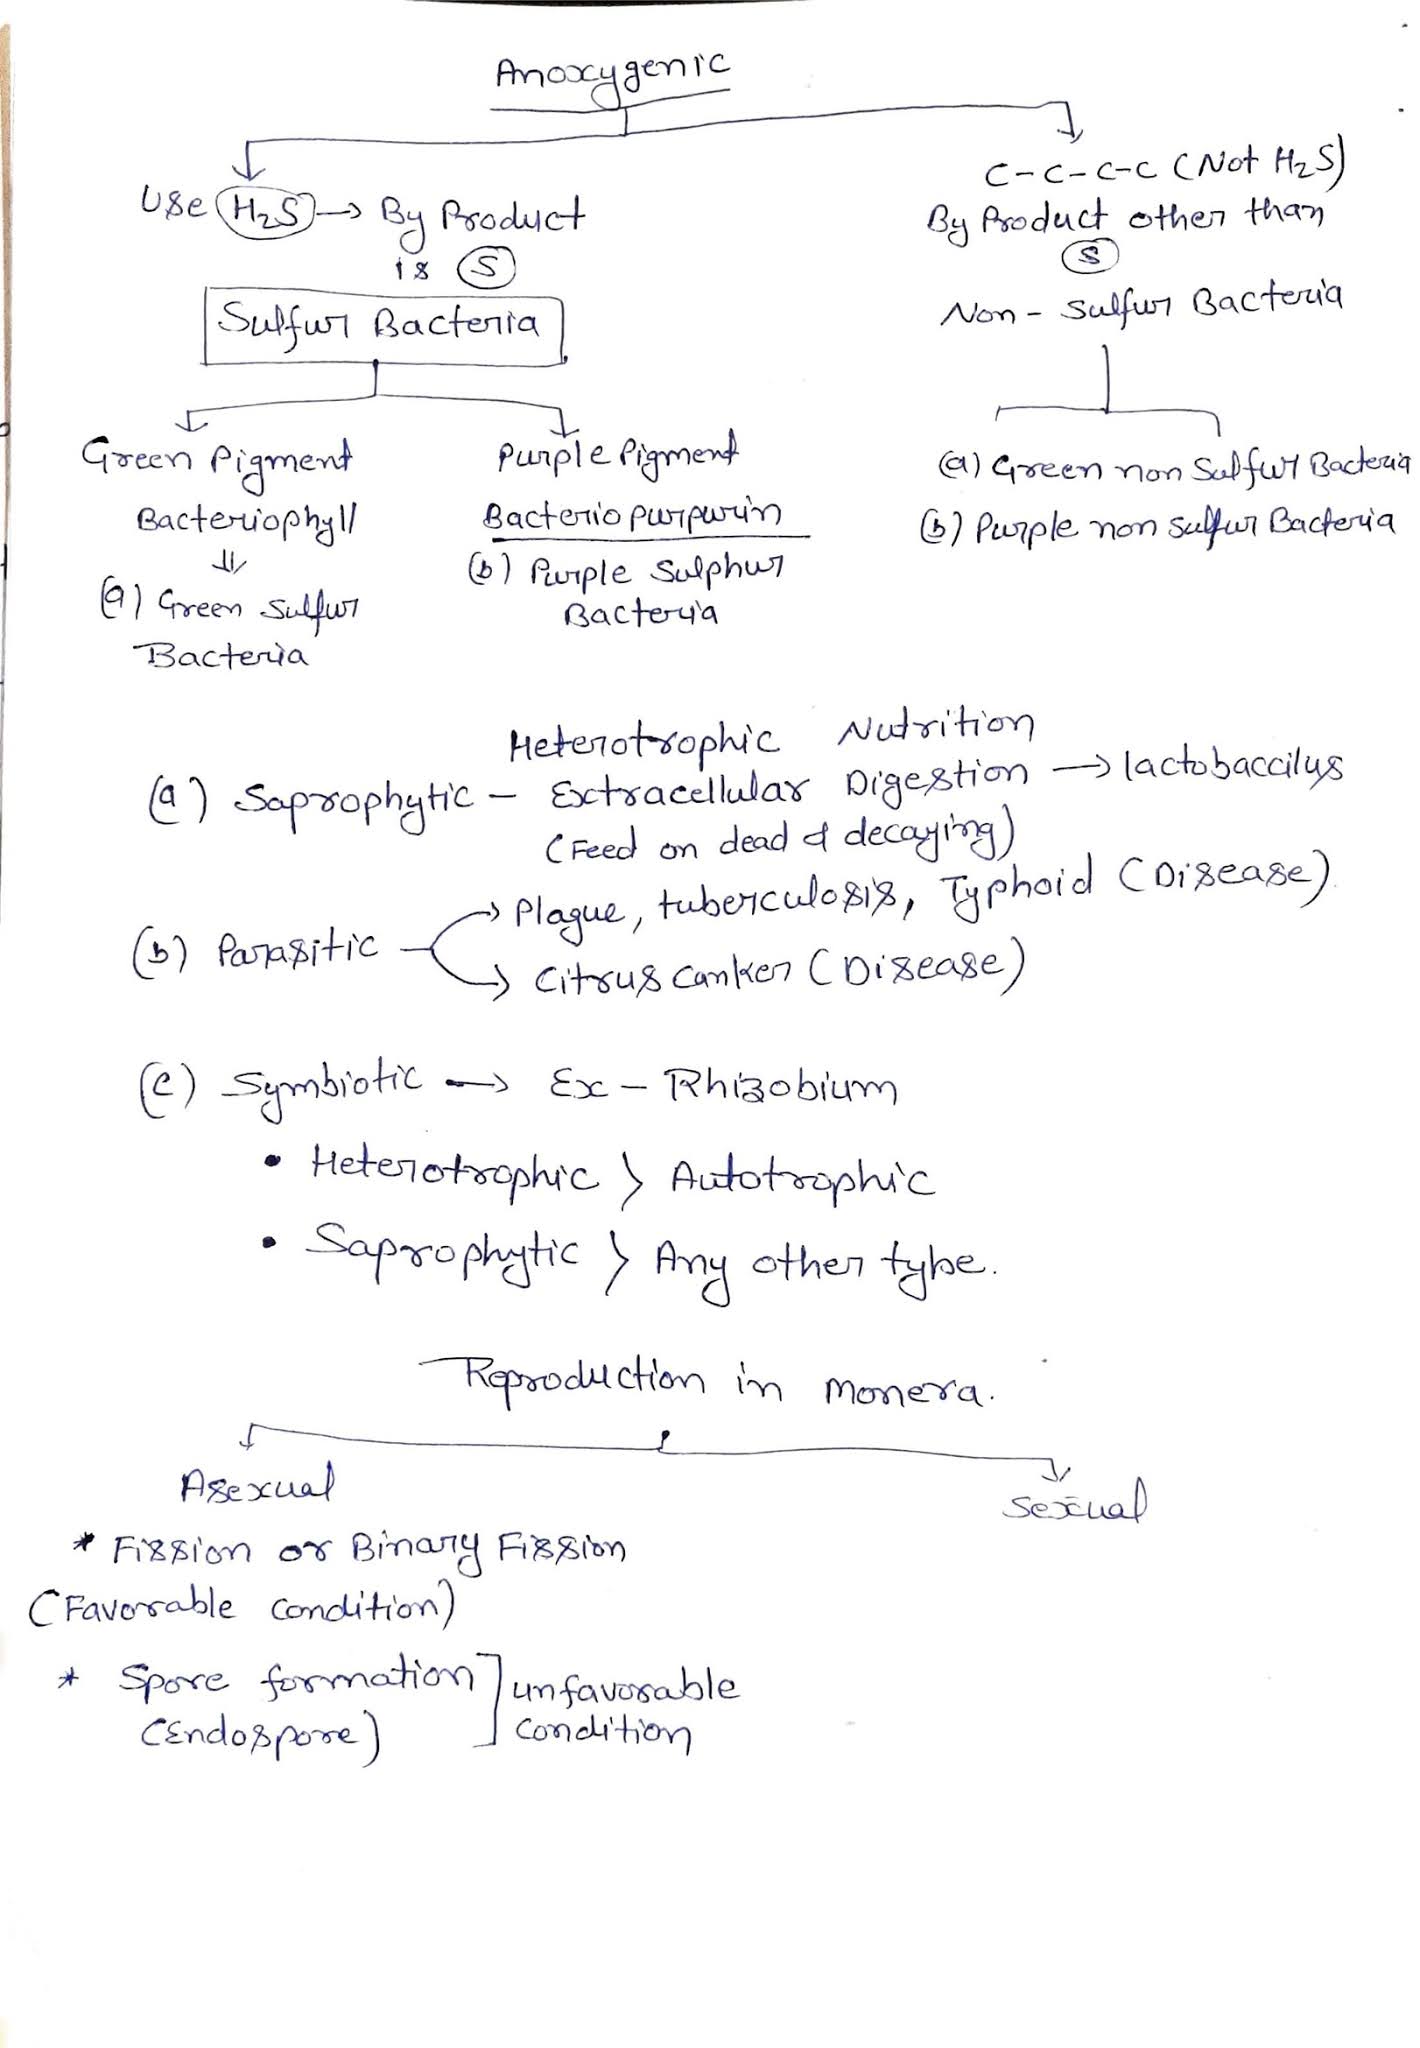 Anoxygenic
Use H₂S → By Product
is S
Sulfur Bacteria
C-C-C-C (Not H₂S)
By Product other than
S
Non - Sulfur Bacteria
Green Pigment
Bacteriophyll
⇓
(a) Green Sulfur
Bacteria
Purple Pigment
Bacteriopurpurin
(b) Purple Sulphur
Bacteria
(a) Green non Sulfur Bacteria
(b) Purple non sulfur Bacteria
Heterotrophic Nutrition
(a) Saprophytic - Extracellular Digestion → lactobaccilus
(Feed on dead & decaying)
(b) Parasitic → Plague, tuberculosis, Typhoid (Disease)
→ Citrus Canker (Disease)
(c) Symbiotic → Ex - Rhizobium
• Heterotrophic > Autotrophic
• Saprophytic > Any other type.
Reproduction in monera.
Asexual
* Fission or Binary Fission
(Favorable condition)
* Spore formation ] unfavorable
(Endospore) condition
Sexual